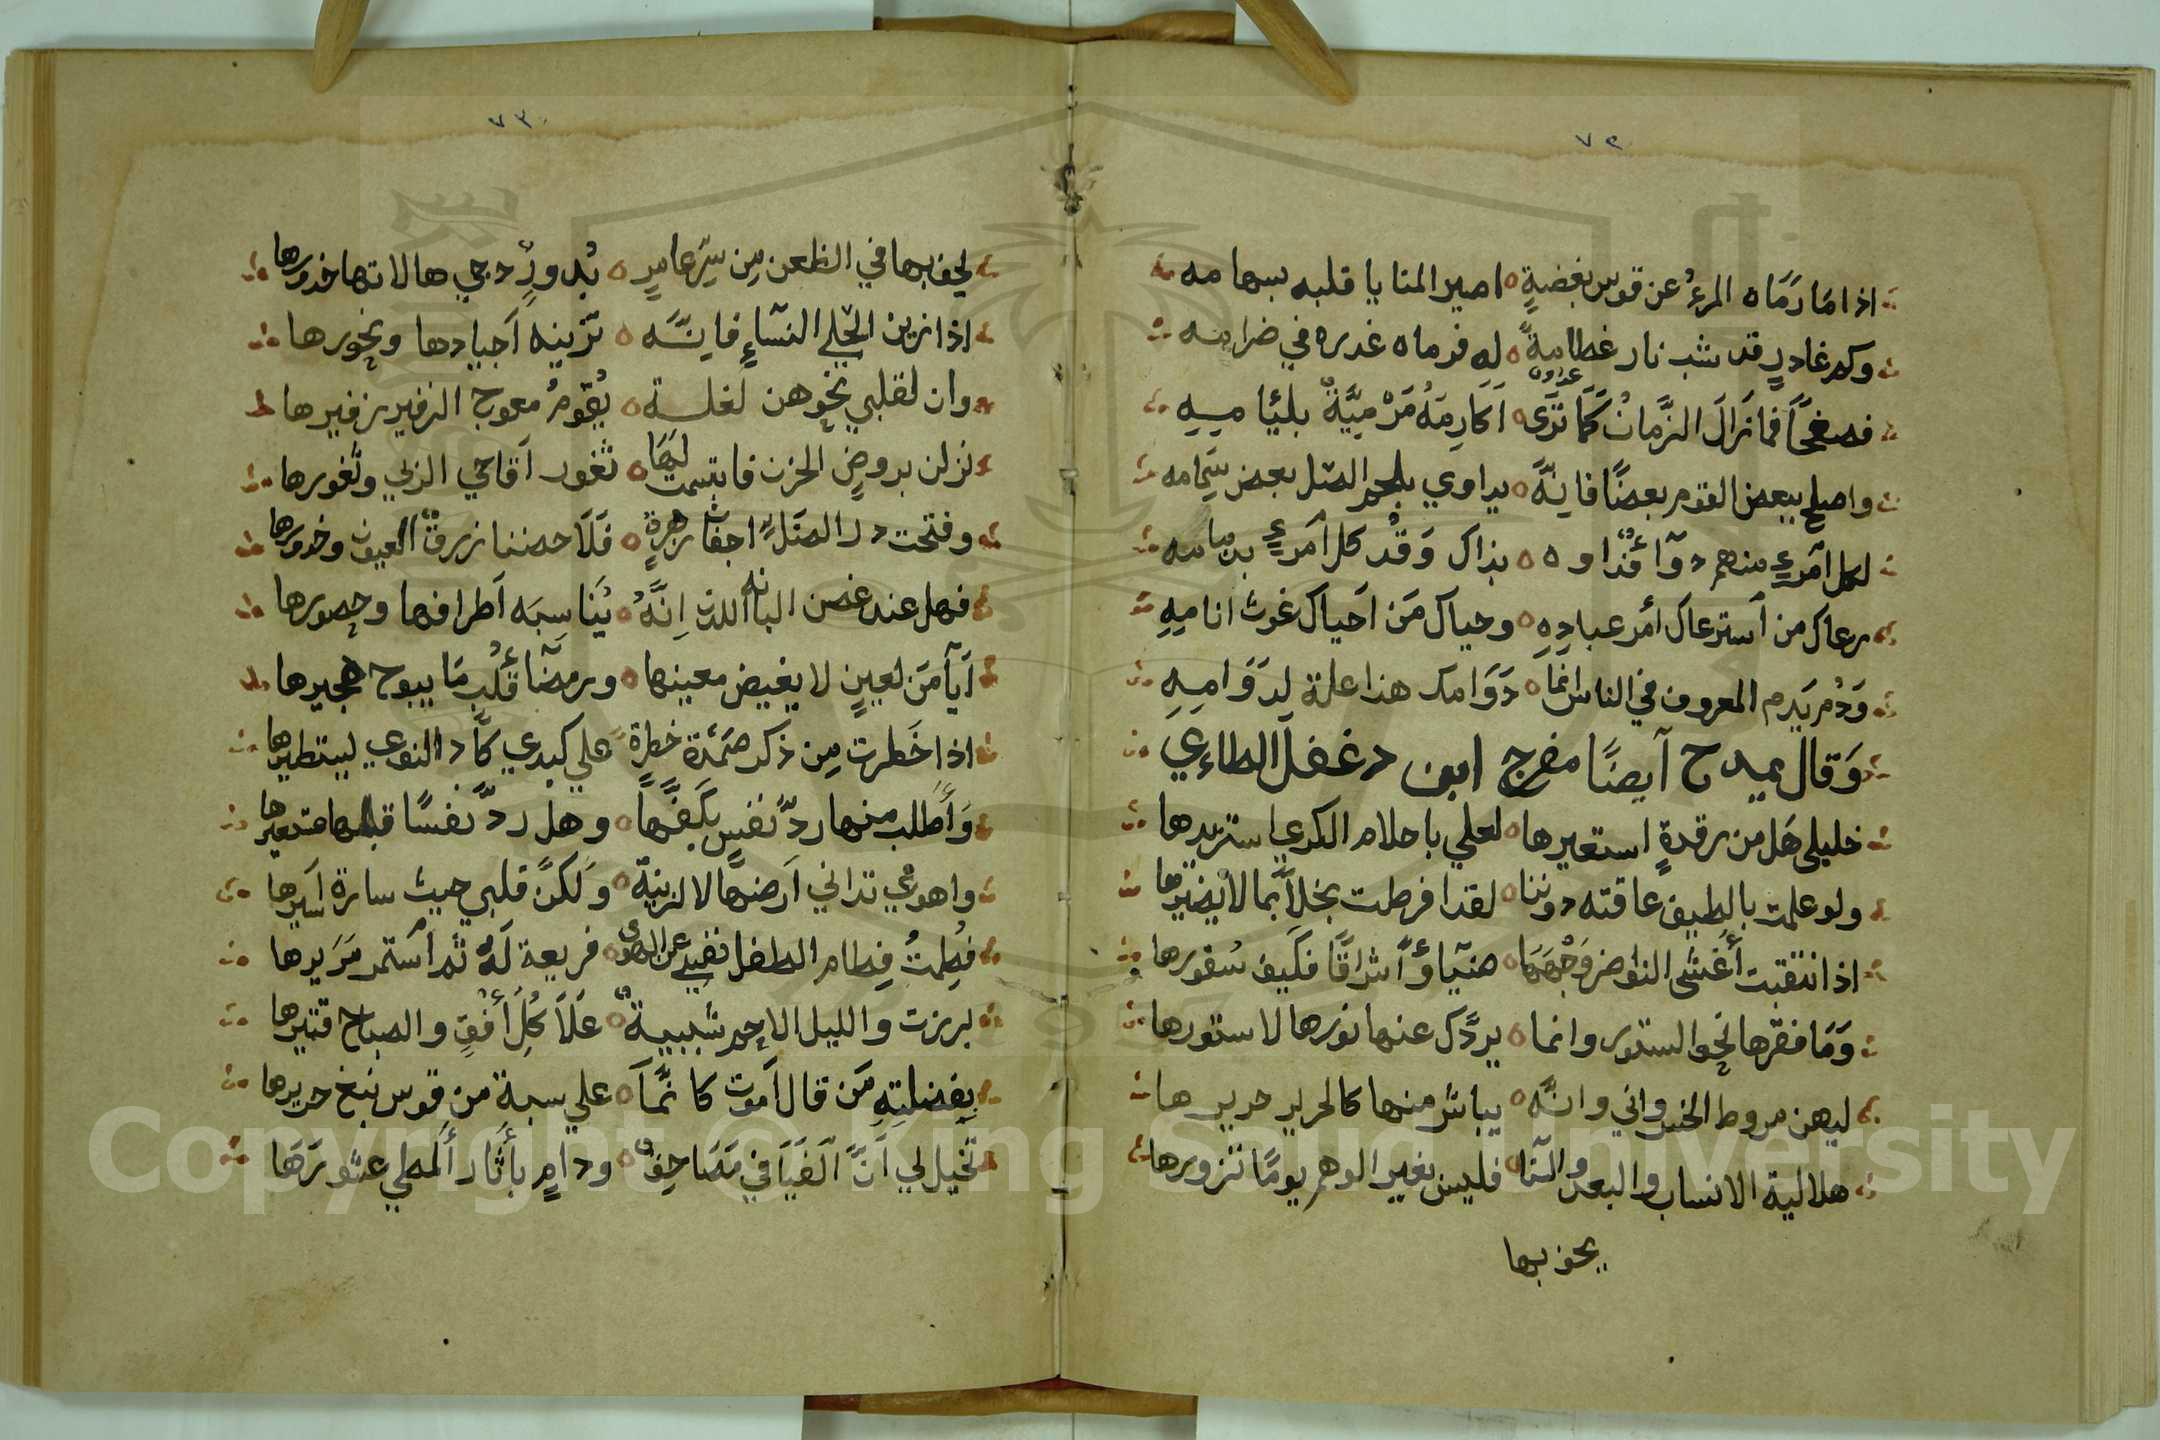 ٧٢
اذا مَا رَمَاه المرءُ عن قوس بغضةٍ اصير المنايا قلبه بسهامه
وكم غادرٍ قد شب نار غطامةً له فرماه غدره في ضرامه
فصفحًا فما زَالَ الزَّمانُ كَمَا تَرَى اَكَارِمَهُ مَرْمِيَّةٌ بلئامِهِ
عداوة
واصلح ببعض القوم بعضًا فانّهَ يداوي بلحم الصل بعض سِمَامه
لكل آمرءٍ منهم دوآءٌ فداوه بذاك وَقُد كل آمرءٍ بزمامه
رعاك من آسترعاك أمر عبادِهِ وحياك مَن احَياك غوث انامِهِ
وَدُم يَدم المعروف في الناس انمَا دَوَامك هذا علة لِدَوَامِهِ
وَقال يمدح آيضًا مفرج ابن دغفل الطاءي
خليلي هَل من رقدةٍ استعيرها لعلي باحلام الكرى استزيرها
ولو علمت بالطيف عاقته دوننا لقد افرطت بخلاً بما لا يضيرها
اذا انتقبت أغشى النواضر وَجْهَهَا ضيآً وأشراقًا فكَيف سفورها
وَمَا فقرها نحو الستور وانما يردّك عنها نورها لا ستورها
ليهن مروط الخسرواني وانّهَ يباشر منها كالحرير حريرها
هلالية الانساب والبعد والنآ فليس بغير الوهم يومًا تزورها
يحف بها
٧٣
يحف بها في الظعن مِن سِرّ عامرٍ بُدورُ دجي هالاتها خدورها
اذا زين الحلي النسآءِ فانّهَ تزينه اَجيادها ونحورها
وان لقلبي نحوهن لغلة يُقومُ معوج الزفير زفيرها
نزلن بروضِ الحزن فابتسمت لهَا ثغور اَقاحي الربي وثغورها
وفتحت در الطّلِ اجفان زهرةٍ فَلاَحضننا زرق العيون وخدورها
فهل عند غصن البانه اللدن اِنّهُ يُنَاسِبَه اَطرافها وحصورها
اَيآ مَن لعينٍ لا يغيض معينها ورمضآ قلبٍ مَا يبوح هجيرها
اذا خَطرت مِن ذكر ضمئة خطرةٍ علي كبدي كاد النوي ليستطيرها
وَأطلب منها ردّ نفسٍ بكَفّهَا وهل ردّ نفسًا قبلها مستعيرها
واهوي تداني اَرضها لا لزينة وَلكنّ قلبي حيث سارة اَسيرها
فُطِمتُ فِطام الطفل نفسي عن الهوى فريعة لَهُ ثم آستمر مَرَيرها
بررت والليل الاحم شبيبة عَلاَ كُلِ أفقٍ والصباح قتيرها
بِفضليتِهِ مَن قال اَموت كانّمَا علي سبة من قوس نبغ حريرها
تَخيل لي اَنَّ اَلفَيَافي مَصَاحِف ودامٍ بأثار اَلمطي عشورَهَا